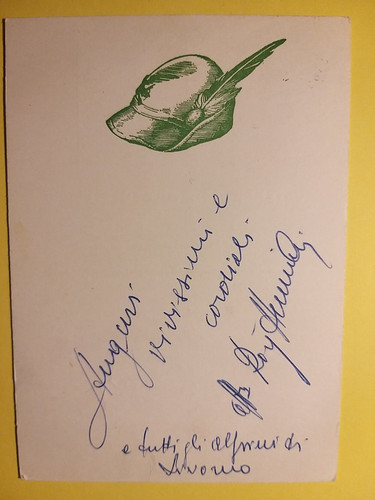 Auguri
vivissimi e
cordiali
e tutti gli alpini di
Livorno